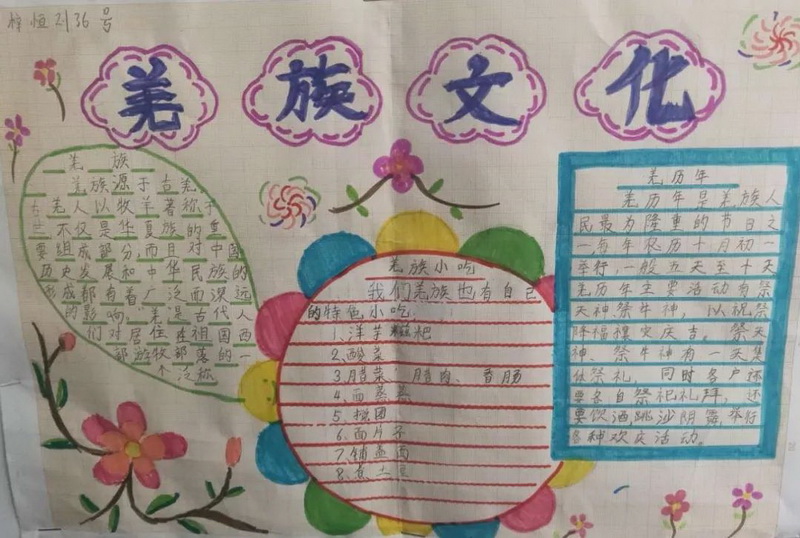 恒2136号
羌族文化
羌族
羌族源于古羌,
古羌人以牧羊著称于
世,不仅是华夏族的重
要组成部分,而且对中国
历史发展和中华民族的
形成都有着广泛而深远
的影响。"羌是古代人
们对居住在祖国西
部游牧部落的一
个泛称
羌族小吃
我们羌族也有自己
的特色小吃
1、洋芋糍粑
2、酸菜
3、腊菜、腊肉、香肠
4、面蒸蒸
5、搅团
6、面片子
7、锅盔面
8、煮土豆
羌历年
羌历年是羌族人
民最为隆重的节日之
一每年农历十月初一
举行,一般五天至十天
羌历年主要活动有祭
天神祭牛神,以祝祭
降福禳灾庆吉。祭天
神、祭牛神有一天集
体祭礼,同时各户还
要各自祭祀礼拜,还
要饮酒跳沙朗舞,举行
各种欢庆活动。